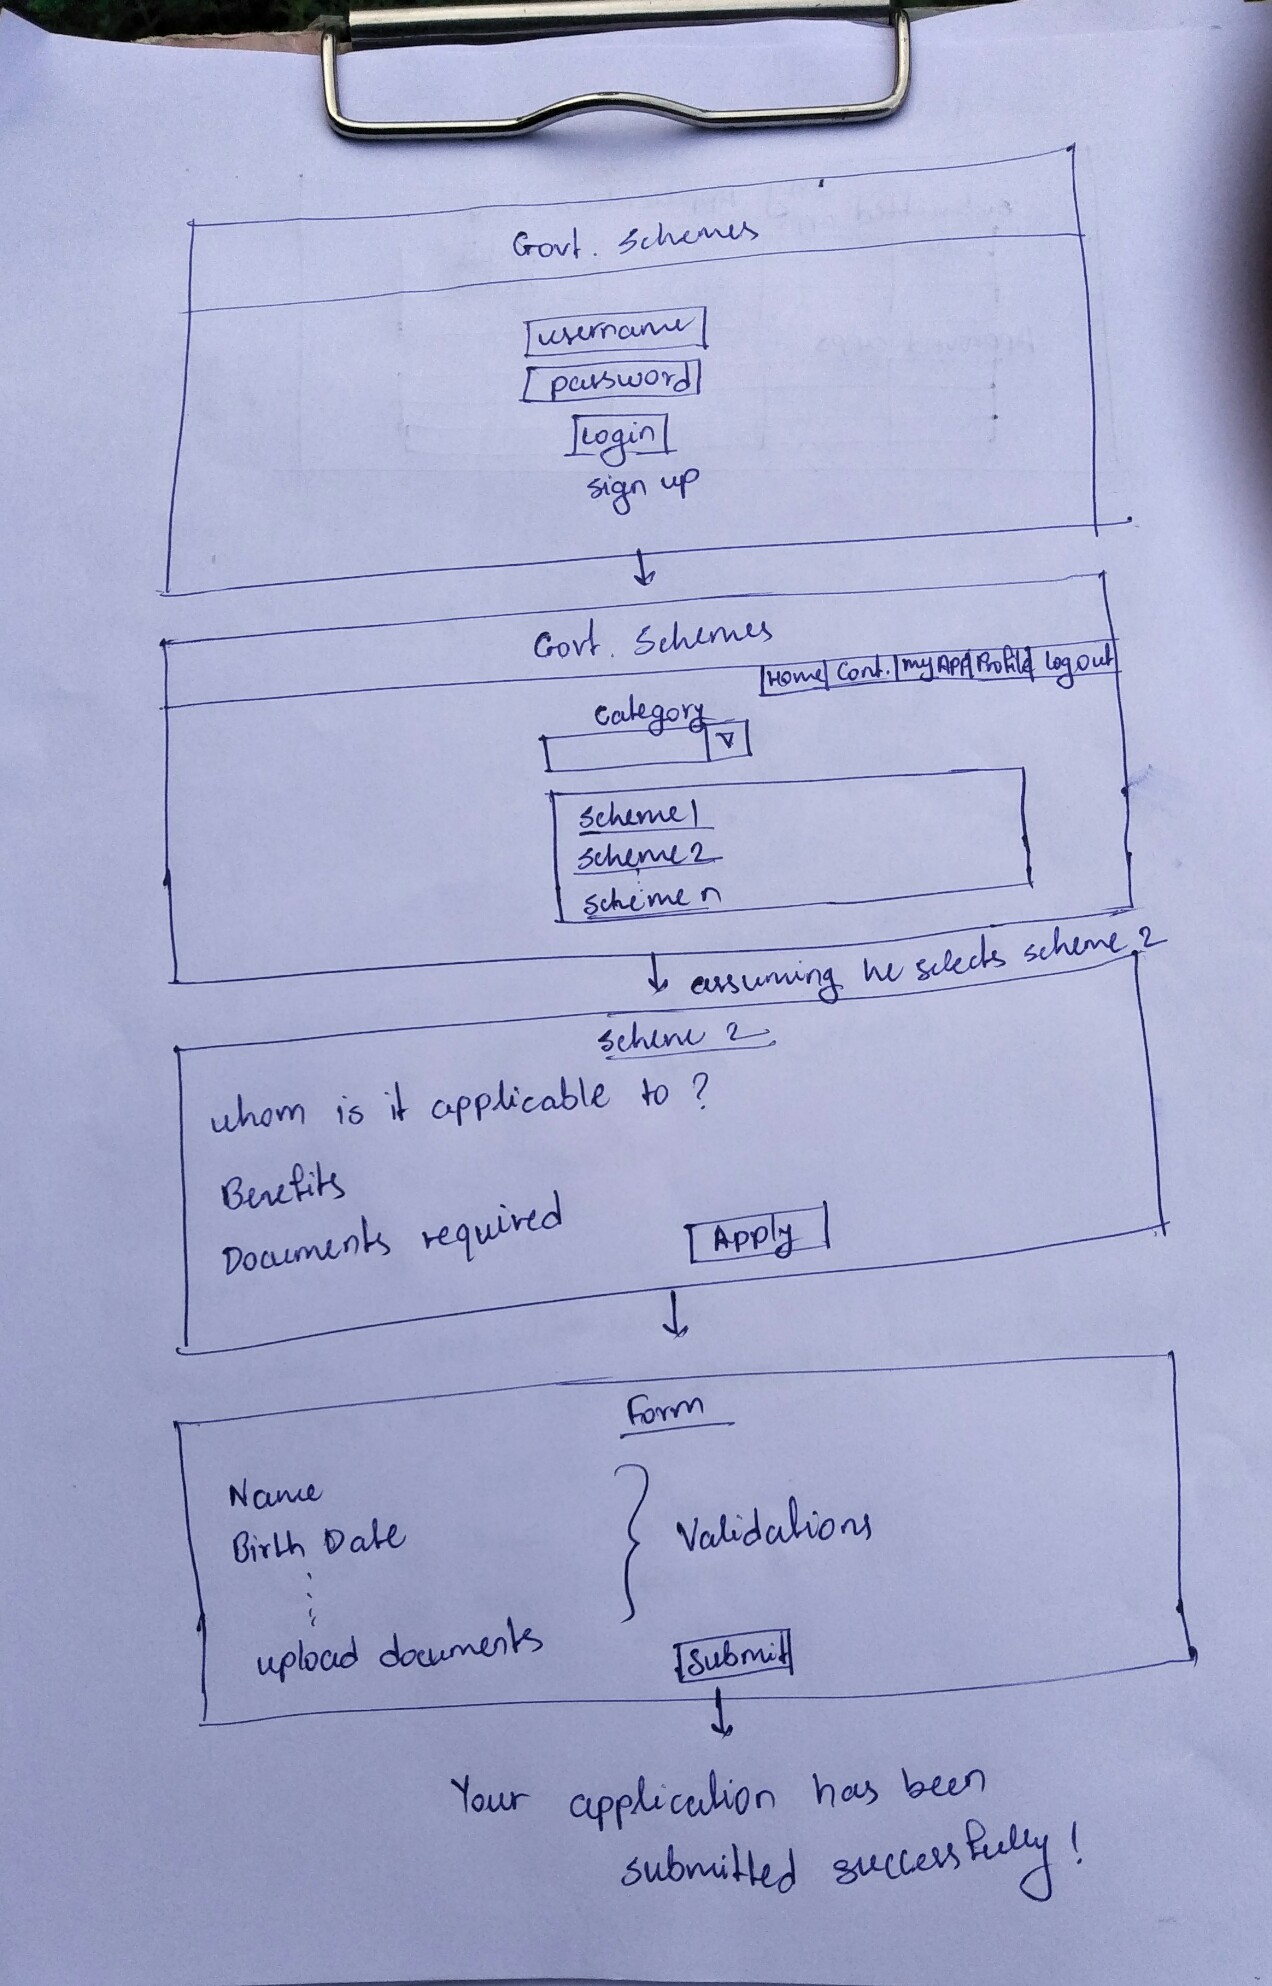 Govt. Schemes
username
password
Login
sign up
Govt. Schemes
Home Cont. my App Profile Logout
Category
Scheme 1
Scheme 2
Scheme n
assuming he selects scheme 2
Scheme 2
whom is it applicable to ?
Benefits
Documents required
Apply
Form
Name
Birth Date
Validations
upload documents
Submit
Your application has been
submitted successfully !